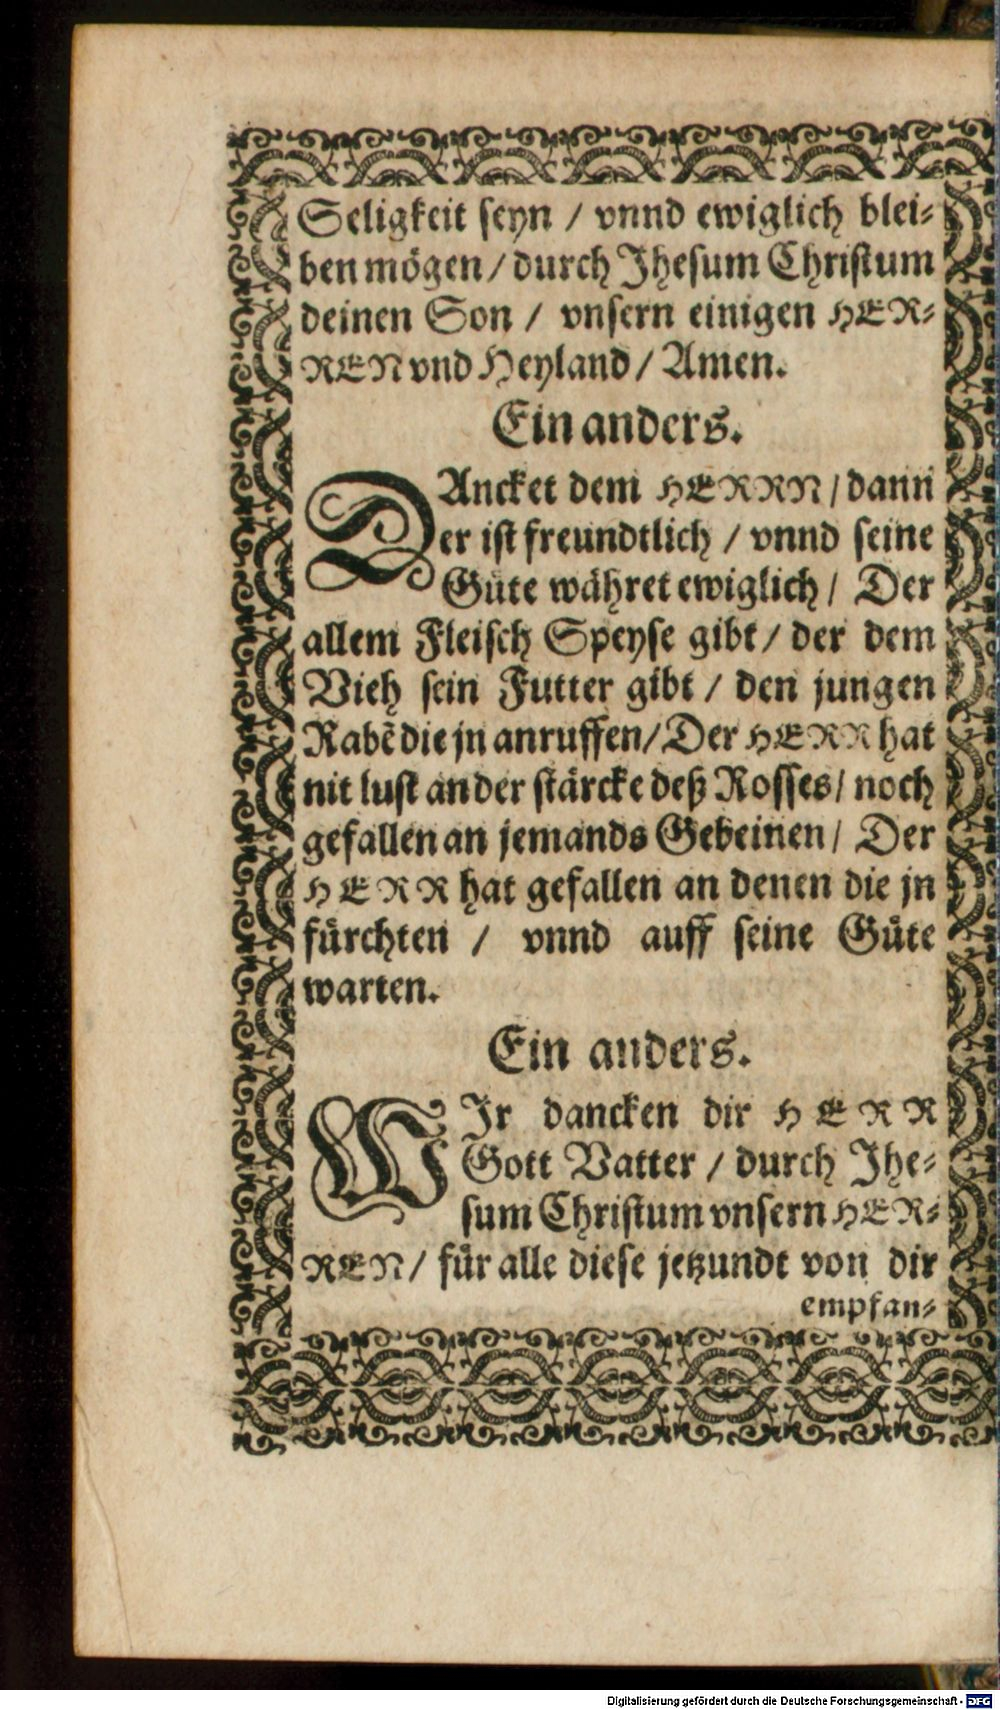 Seligkeit seyn / vnnd ewiglich blei-
ben mögen / durch Jhesum Christum
deinen Son / vnsern einigen HER-
REN vnd Heyland / Amen.
Ein anders.
DAncket dem HERRN / dann
er ist freundtlich / vnnd seine
Güte währet ewiglich / Der
allem Fleisch Speyse gibt / der dem
Vieh sein Futter gibt / den jungen
Rabẽ die jn anruffen / Der HERR hat
nit lust an der stärcke deß Rosses / noch
gefallen an jemands Gebeinen / Der
HERR hat gefallen an denen die jn
fürchten / vnnd auff seine Güte
warten.
Ein anders.
WJr dancken dir HERR
Gott Vatter / durch Jhe-
sum Christum vnsern HER-
REN / für alle diese jetzundt von dir
empfan-
Digitalisierung gefördert durch die Deutsche Forschungsgemeinschaft - DFG